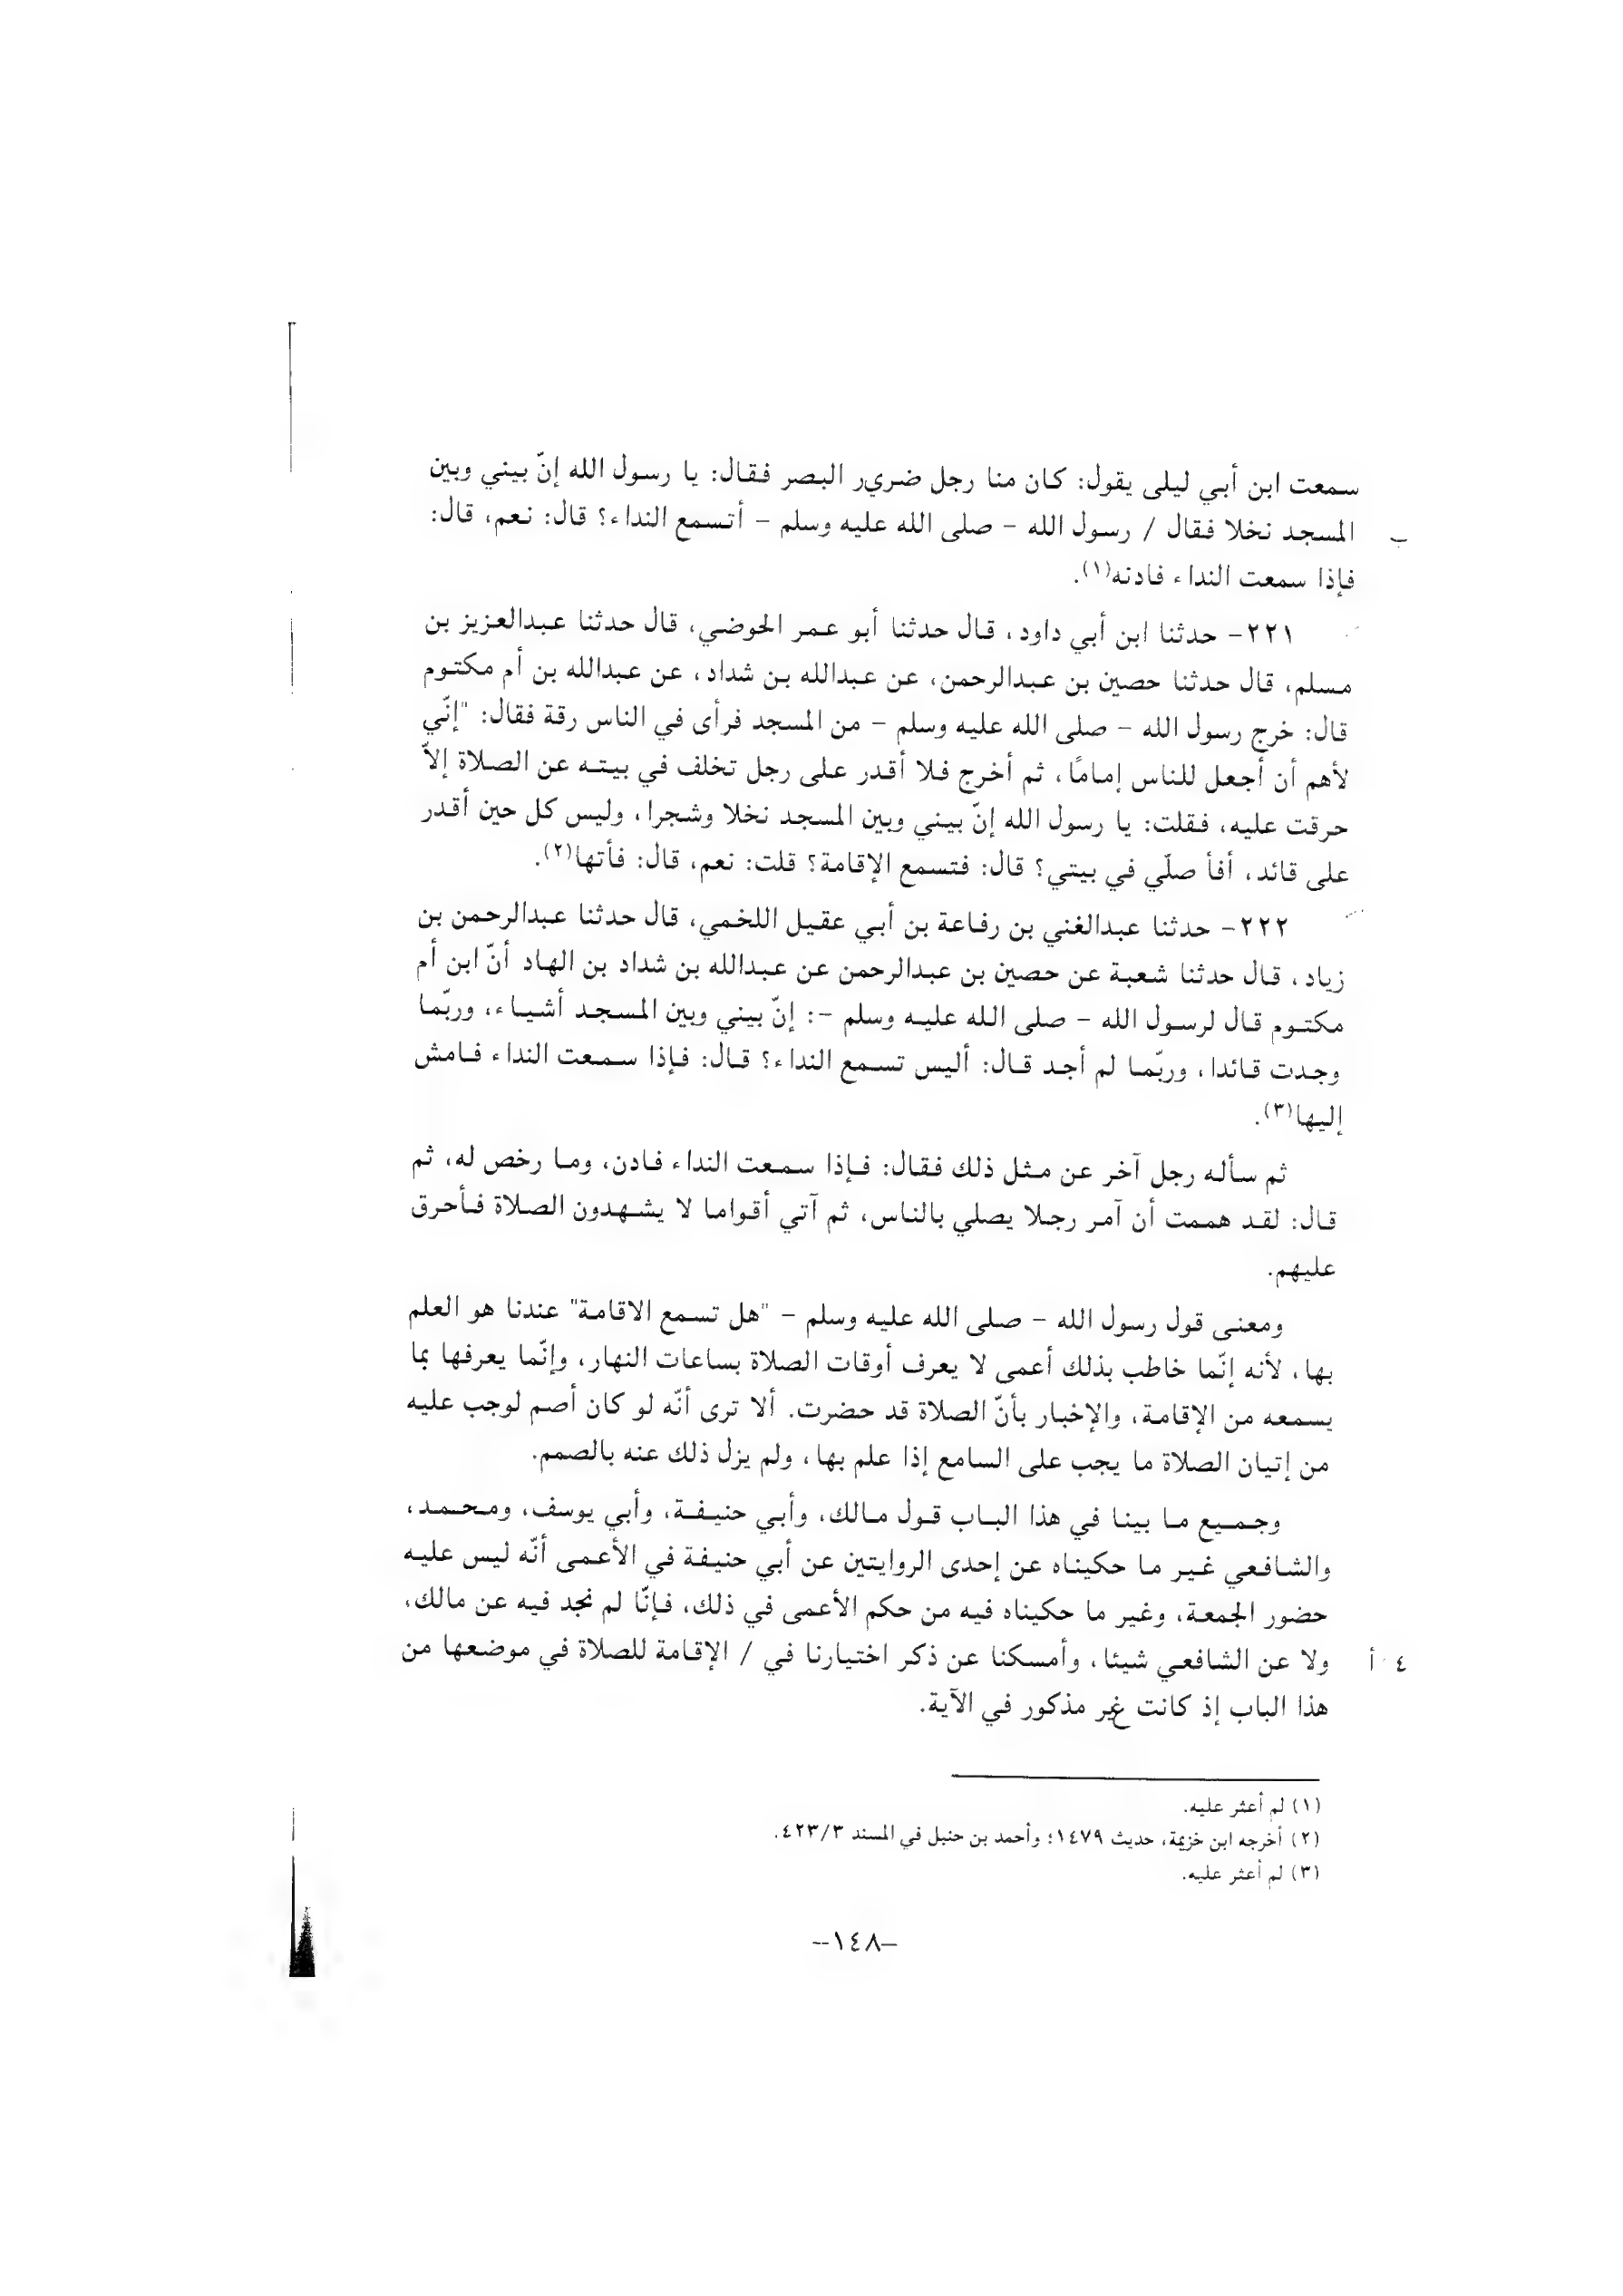 سمعت ابن أبي ليلى يقول: كان منا رجل ضرير البصر فقال: يا رسول الله إنّ بيني وبين
المسجد نخلا فقال / رسول الله – صلى الله عليه وسلم – أتسمع النداء؟ قال: نعم، قال:
فإذا سمعت النداء فادنه(١).
٢٢١- حدثنا ابن أبي داود، قال حدثنا أبو عمر الحوضي، قال حدثنا عبدالعزيز بن
مسلم، قال حدثنا حصين بن عبدالرحمن، عن عبدالله بن شداد، عن عبدالله بن أم مكتوم
قال: خرج رسول الله – صلى الله عليه وسلم – من المسجد فرأى في الناس رقة فقال: "إنّي
لأهم أن أجعل للناس إمامًا، ثم أخرج فلا أقدر على رجل تخلف في بيته عن الصلاة إلاّ
حرقت عليه، فقلت: يا رسول الله إنّ بيني وبين المسجد نخلا وشجرا، وليس كل حين أقدر
على قائد، أفأ صلّي في بيتي؟ قال: فتسمع الإقامة؟ قلت: نعم، قال: فأتها(٢).
٢٢٢- حدثنا عبدالغني بن رفاعة بن أبي عقيل اللخمي، قال حدثنا عبدالرحمن بن
زياد، قال حدثنا شعبة عن حصين بن عبدالرحمن عن عبدالله بن شداد بن الهاد أنّ ابن أم
مكتوم قال لرسول الله – صلى الله عليه وسلم –: إنّ بيني وبين المسجد أشياء، وربّما
وجدت قائدا، وربّما لم أجد قال: أليس تسمع النداء؟ قال: فإذا سمعت النداء فامش
إليها(٣).
ثم سأله رجل آخر عن مثل ذلك فقال: فإذا سمعت النداء فادن، وما رخص له، ثم
قال: لقد هممت أن آمر رجلا يصلي بالناس، ثم آتي أقواما لا يشهدون الصلاة فأحرق
عليهم.
ومعنى قول رسول الله – صلى الله عليه وسلم – "هل تسمع الاقامة" عندنا هو العلم
بها، لأنه إنّما خاطب بذلك أعمى لا يعرف أوقات الصلاة بساعات النهار، وإنّما يعرفها بما
يسمعه من الإقامة، والإخبار بأنّ الصلاة قد حضرت. ألا ترى أنّه لو كان أصم لوجب عليه
من إتيان الصلاة ما يجب على السامع إذا علم بها، ولم يزل ذلك عنه بالصمم.
وجميع ما بينا في هذا الباب قول مالك، وأبي حنيفة، وأبي يوسف، ومحمد،
والشافعي غير ما حكيناه عن إحدى الروايتين عن أبي حنيفة في الأعمى أنّه ليس عليه
حضور الجمعة، وغير ما حكيناه فيه من حكم الأعمى في ذلك، فإنّا لم نجد فيه عن مالك،
ولا عن الشافعي شيئا، وأمسكنا عن ذكر اختيارنا في / الإقامة للصلاة في موضعها من
هذا الباب إذ كانت غير مذكور في الآية.
(١) لم أعثر عليه.
(٢) أخرجه ابن خزيمة، حديث ١٤٧٩؛ وأحمد بن حنبل في المسند ٤٢٣/٣.
(٣) لم أعثر عليه.
–١٤٨–